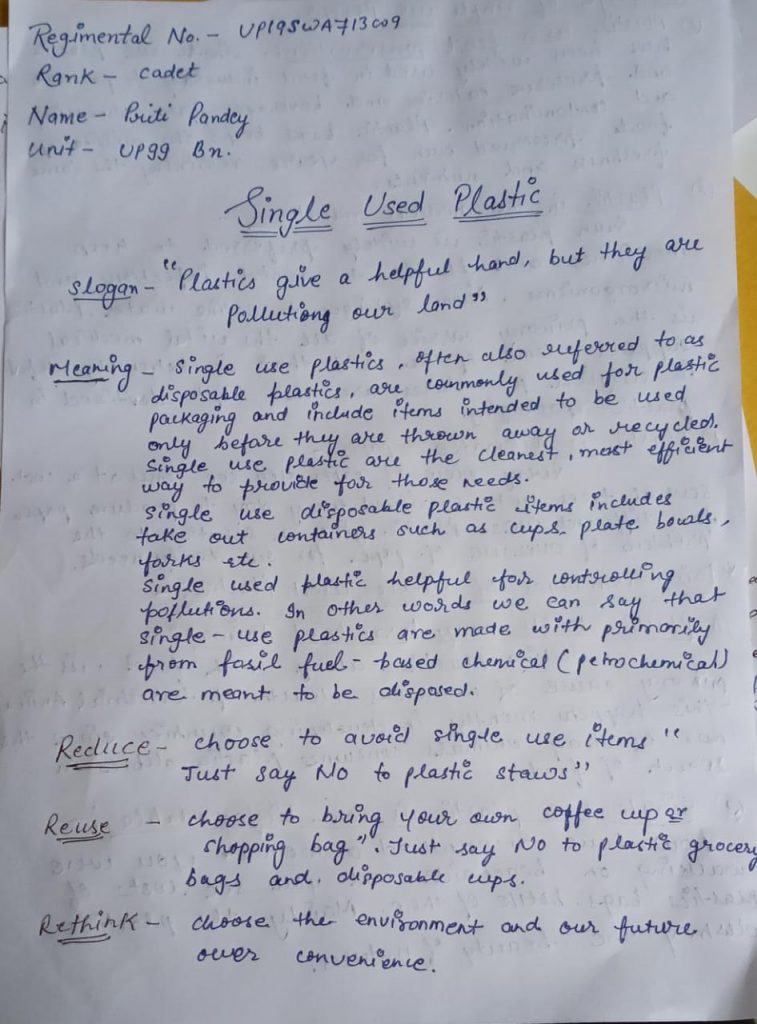 Regimental No. - UP19SWA713009
Rank - cadet
Name - Priti Pandey
Unit - UP99 Bn.
Single Used Plastic
Slogan - "Plastics give a helpful hand, but they are
Pollutiong our land"
Meaning - Single use plastics, often also referred to as
disposable plastics, are commonly used for plastic
packaging and include items intended to be used
only before they are thrown away or recycled.
Single use plastic are the cleanest, most efficient
way to provide for those needs.
Single use disposable plastic items includes
take out containers such as cups, plate bowls,
forks etc.
Single used plastic helpful for controlling
pollutions. In other words we can say that
single-use plastics are made with primarily
from fosil fuel-based chemical (petrochemical)
are meant to be disposed.
Reduce - choose to avoid single use items "
Just say No to plastic staws"
Reuse - choose to bring your own coffee cup or
shopping bag". Just say NO to plastic grocery
bags and. disposable cups.
Rethink - choose the environment and our future
over convenience.